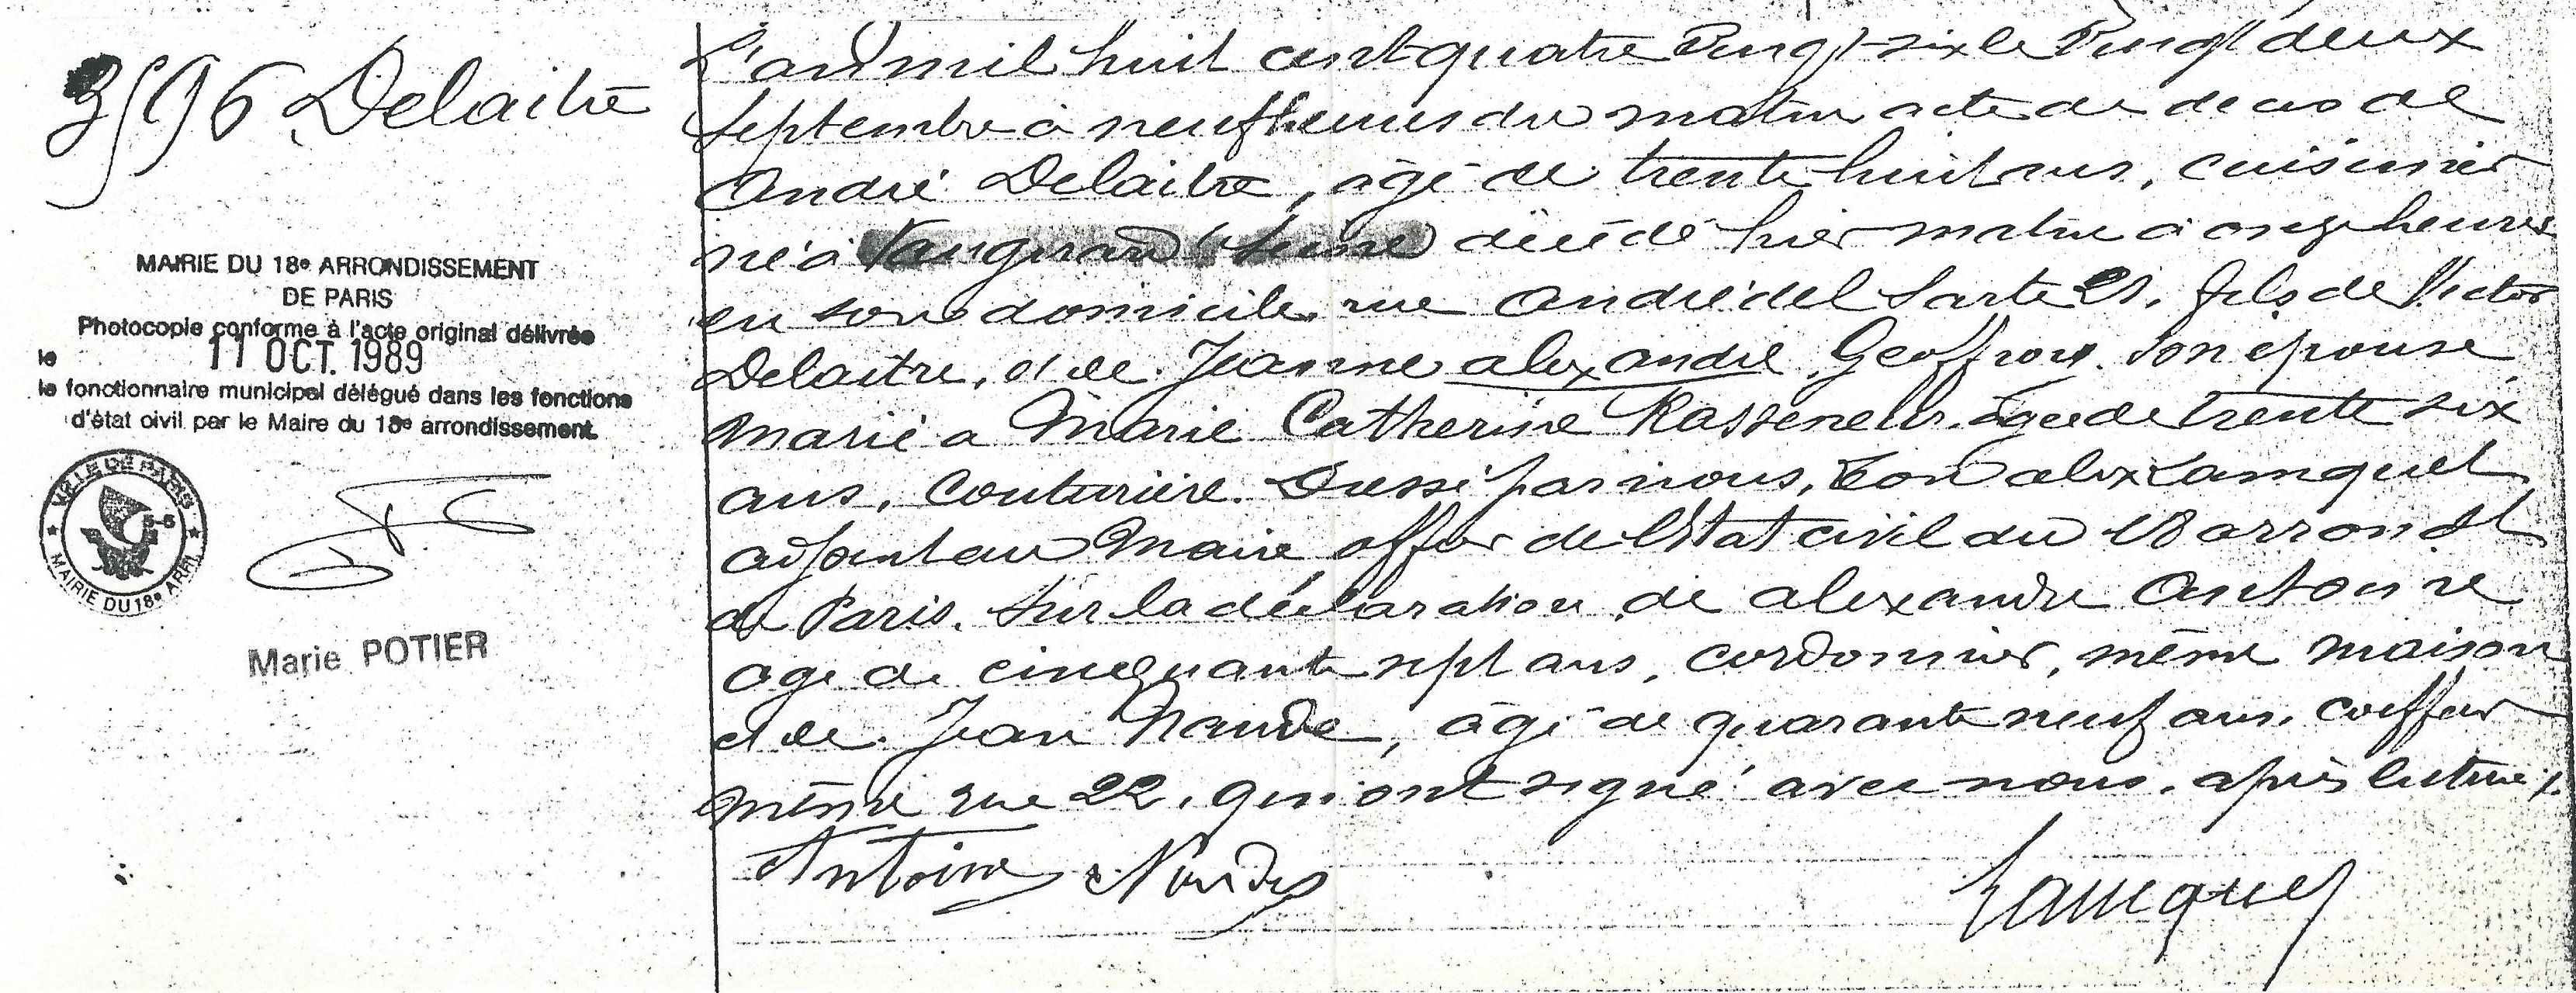 3596 Delaitre
MAIRIE DU 18e ARRONDISSEMENT
DE PARIS
Photocopie conforme à l'acte original délivrée
le 11 OCT. 1989
le fonctionnaire municipal délégué dans les fonctions
d'état civil par le Maire du 18e arrondissement.
VILLE DE PARIS
MAIRIE DU 18e ARRt
Marie POTIER
L'an mil huit cent quatre vingt-six le vingt deux
septembre à neuf heures du matin acte de décès de
André Delaitre, âgé de trente huit ans, cuisinier
né à Vaugirard (Seine) décédé hier matin à onze heures
en son domicile rue André del Sarte 21, fils de Victor
Delaitre, et de Jeanne alexandre Geoffroy son épouse
marié à Marie Catherine Rasseneur, âgée de trente six
ans, couturière. Dressé par nous, alex Lamquet
adjoint au Maire, offier de l'état civil du 18 arrondt
de Paris. Sur la déclaration de alexandre Antoine
age de cinquante sept ans, cordonnier, même maison
et de Jean Naude, âgé de quarante neuf ans, coiffeur
même rue 22, qui ont signé avec nous, après lecture
Antoine Naude
Lamquet